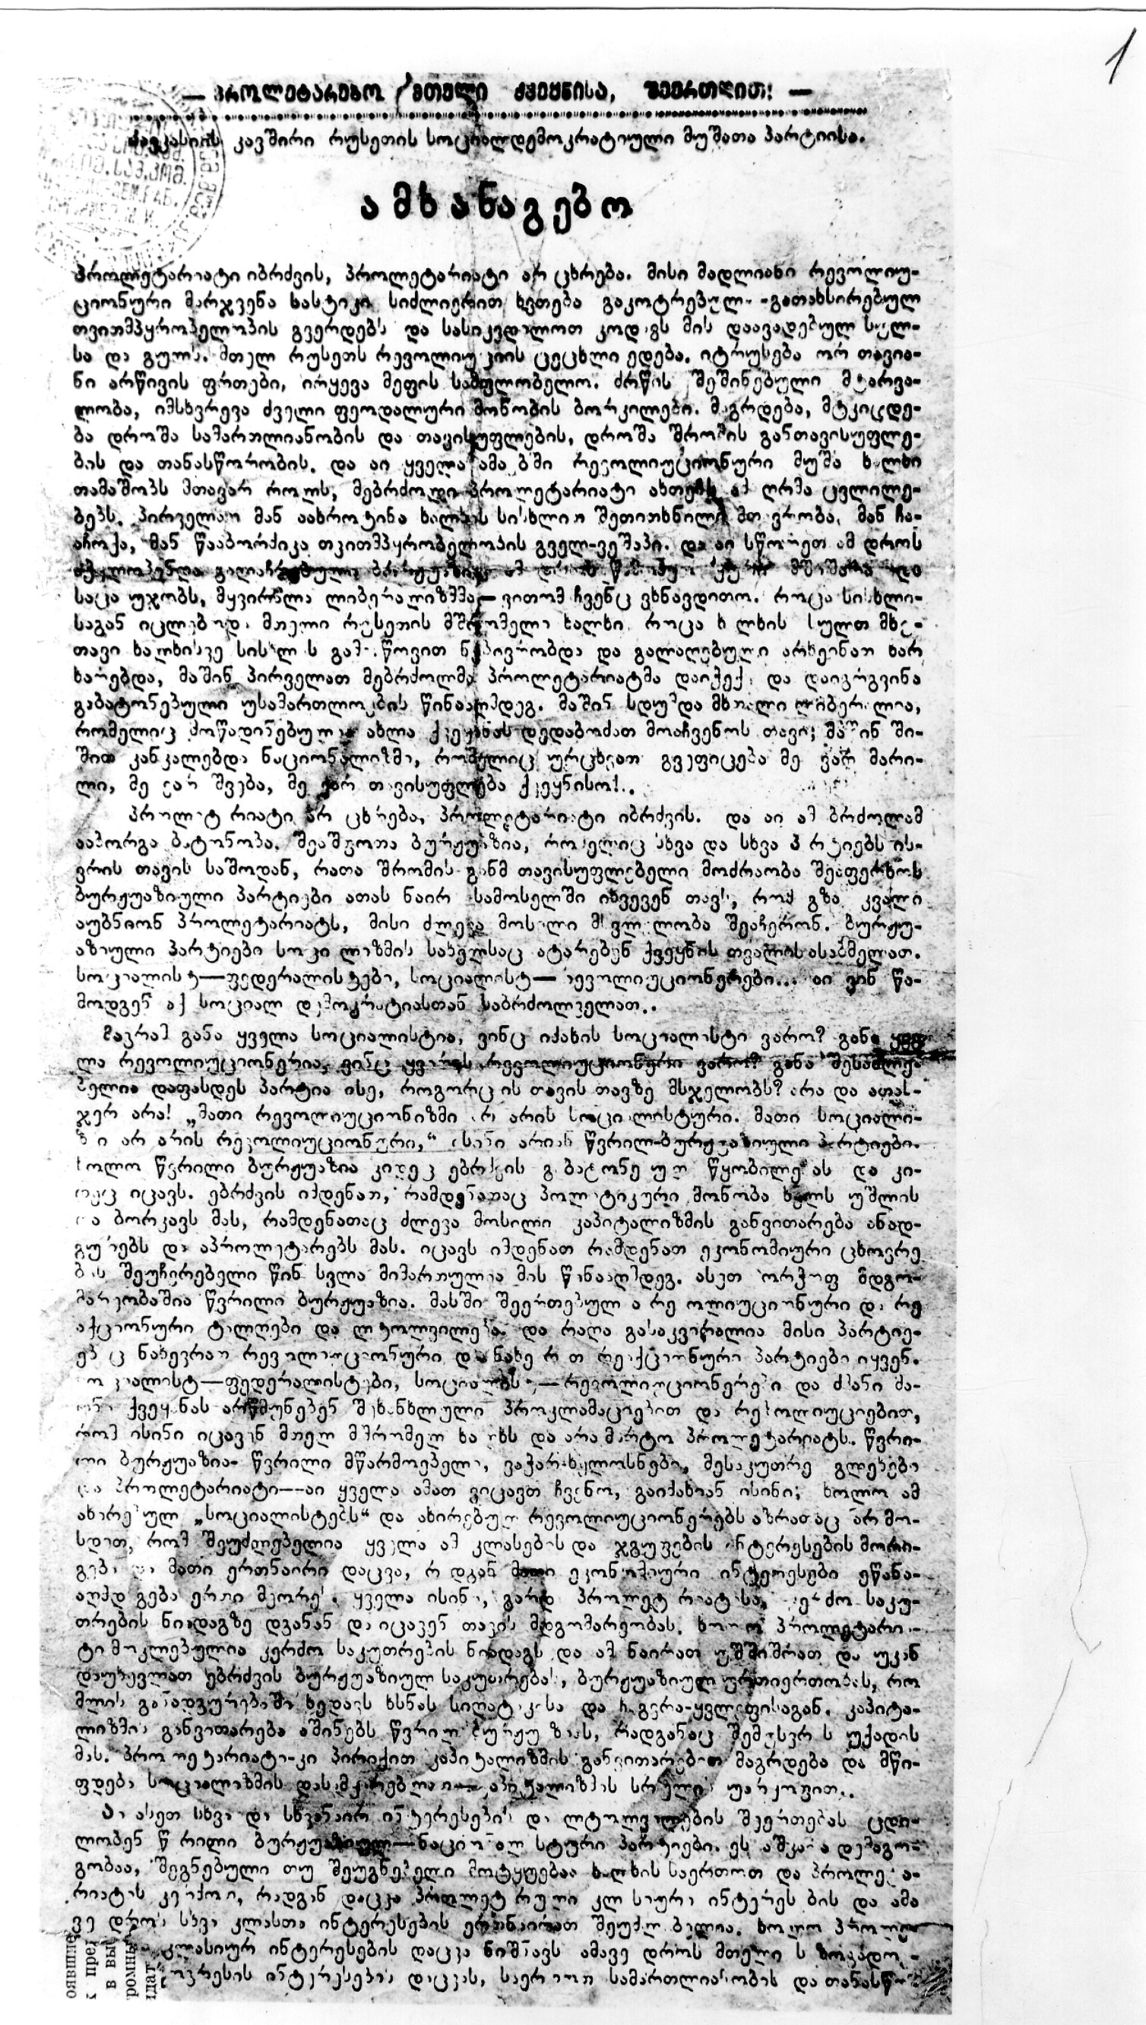 1
— პროლეტარებო მთელი ქვეყნისა, შეერთდით! —
კავკასიის კავშირი რუსეთის სოციალდემოკრატიული მუშათა პარტიისა.
ამხანაგებო
პროლეტარიატი იბრძვის, პროლეტარიატი არ ცხრება. მისი მადლიანი რევოლიუ-
ციონური მარჯვენა სასტიკი სიძლიერით ხვთება გათახსირებულ
თვითმპყრობელობის გვერდებს და სასიკვდილოთ კოდავს მის დაავადებულ სულ-
სა და გულს. მთელ რუსეთს რევოლიუციის ცეცხლი ედება. იტრუსება ორ თავია-
ნი არწივის ფრთები, ირყევა მეფის სამფლობელო. ძრწის შეშინებული მტარვა-
ლობა, იმსხვრევა ძველი ფეოდალური მონობის ბორკილები. მაგრდება, მტკიცდე-
ბა დროშა სამართლიანობის და თავისუფლების, დროშა შრომის განთავისუფლე-
ბის და თანასწორობის. და აი ყველა ამაებში რევოლიუციონური მუშა ხალხი
თამაშობს მთავარ როლს, მებრძოლი პროლეტარიატი ახთენს ამ ღრმა ცვლილე-
ბებს. პირველათ მან აახროტინა ხალხის სისხლით შეთითხნილი მთავრობა, მან ჩა-
აჩოქა, მან წააბორძიკა თვითმპყრობელობის გველ-ვეშაპი. და აი სწორეთ ამ დროს
საცა უჯობს, მყვირალა ლიბერალიზმმა—ვითომ ჩვენც ვხნავდითო. როცა სისხლი-
საგან იცლებოდა მთელი რუსეთის მშრომელი ხალხი, როცა ხალხის სულთ მხუ-
თავი ხალხისვე სისხლის გამოწოვით ნებივრობდა და გალაღებული არხეინათ ხარ
ხარებდა, მაშინ პირველათ მებრძოლმა პროლეტარიატმა დაიქექა და დაიგრგვინა
გაბატონებული უსამართლობის წინააღმდეგ. მაშინ სდუმდა მხდალი ლიბერალია,
რომელიც მოწადინებულია ახლა ქვეყანას დედაბოძათ მოაჩვენოს თავი; მაშინ ში-
შით კანკალებდა ნაციონალიზმი, რომელიც ურცხვათ გვეფიცება მე ვარ მარი-
ლი, მე ვარ შვება, მე ვარ თავისუფლება ქვეყნისო!..
პროლეტარიატი არ ცხრება, პროლეტარიატი იბრძვის. და აი ამ ბრძოლამ
ააბორგა ბატონობა, შეაშფოთა ბურჟუაზია, რომელიც სხვა და სხვა პარტიებს ის-
ვრის თავის სამოდან, რათა შრომის განმთავისუფლებელი მოძრაობა შეაფერხოს
ბურჟუაზიული პარტიები ათას ნაირ სამოსელში ახვევენ თავს, რომ გზა კვალი
აუბნიონ პროლეტარიატს, მისი ძლევა მოსილი მსვლელობა შეაჩერონ. ბურჟუ-
აზიული პარტიები სოციალიზმის სახელსაც ატარებენ ქვეყნის თვალის ასაბმელათ.
სოციალისტ—ფედერალისტები, სოციალისტ—რევოლიუციონერები... აი ვინ წა-
მოდგენ აქ სოციალ დემოკრატიასთან საბრძოლველათ..
მაგრამ განა ყველა სოციალისტია, ვინც იძახის სოციალისტი ვარო? განა ყვე
ლა რევოლიუციონერია, ვინც ყვირის რევოლიუციონერი ვარო? განა შესაძლე-
ბელია დაფასდეს პარტია ისე, როგორც ის თავის თავზე მსჯელობს? არა და ათას-
ჯერ არა! „მათი რევოლიუციონიზმი არ არის სოციალისტური. მათი სოციალი-
ზმი არ არის რევოლიუციონური,“ ისინი არიან წვრილ-ბურჟუაზიული პარტიები.
ხოლო წვრილი ბურჟუაზია კიდეც ებრძვის გაბატონებულ წყობილებას და კი-
დეც იცავს. ებრძვის იმდენათ, რამდენათაც პოლიტიკური მონობა ხელს უშლის
და ბორკავს მას, რამდენათაც ძლევა მოსილი კაპიტალიზმის განვითარება ანად-
გურებს და აპროლეტარებს მას. იცავს იმდენათ რამდენათ ეკონომიური ცხოვრე
ბის შეუჩერებელი წინ სვლა მიმართულია მის წინააღმდეგ. ასეთ ორჭოფ მდგო-
მარეობაშია წვრილი ბურჟუაზია. მასში შეერთებულია რევოლიუციონური და რე
აქციონური ტალღები და ლტოლვილება. და რაღა გასაკვირალია მისი პარტიე-
ებიც ნახევრათ რევოლიუციონური და ნახევრათ რეაქციონური პარტიები იყვენ.
სოციალისტ—ფედერალისტები, სოციალისტ—რევოლიუციონერები და მანი მა-
ქვეყანას არწმუნებენ პროკლამაციებით და რეზოლიუციებით,
რომ ისინი იცავენ მთელ მშრომელ ხალხს და არა მარტო პროლეტარიატს. წვრი-
ლი ბურჟუაზია- წვრილი მწარმოებელი, ვაჭარ-ხელოსნები, მესაკუთრე გლეხები
და პროლეტარიატი—აი ყველა ამათ ვიცავთ ჩვენო, გაიძახიან ისინი; ხოლო ამ
ახირებულ „სოციალისტებს“ და ახირებულ რევოლიუციონერებს აზრათაც არ მო-
სდით, რომ შეუძლებელია ყველა ამ კლასების და ჯგუფების ინტერესების მორი-
გება და მათი ერთნაირი დაცვა, რადგან მათი ეკონომიური ინტერესები ეწინა-
აღმდეგება ერთი მეორეს. ყველა ისინი, გარდა პროლეტარიატისა, კერძო საკუ-
თრების ნიადაგზე დგანან და იცავენ თავის მდგომარეობას. ხოლო პროლეტარი-
ტი მოკლებულია კერძო საკუთრების ნიადაგს და ამ ნაირათ უშიშრათ და უკან
დაუხევლათ ებრძვის ბურჟუაზიულ საკუთრებას, ბურჟუაზიულ ურთიერთობას, რო
მლის განადგურებაში ხედავს ხსნას სიღატაკისა და ჩაგვრა-ყვლეფისაგან. კაპიტა-
ლიზმის განვითარება აშინებს წვრილ ბურჟუაზიას, რადგანაც შემუსვრას უქადის
მას. პროლეტარიატი-კი პირიქით კაპიტალიზმის განვითარებით მაგრდება და მწი-
ფდება სოციალიზმის დასამყარებლათ—კაპიტალიზმის სრული უარყოფით..
აი ასეთ სხვა და სხვანაირ ინტერესების და ლტოლვილების შეერთებას ცდი-
ლობენ წვრილი ბურჟუაზიულ—ნაციონალისტური პარტიები. ეს აშკარა დემაგო-
გობაა, შეგნებული თუ შეუგნებელი მოტყუებაა ხალხის საერთოთ და პროლეტა-
რიატის კერძოთ, რადგან დაცვა პროლეტარული კლასიური ინტერესების და ამა
ვე დროს სხვა კლასთა ინტერესების ერთნაირათ შეუძლებელია. ხოლო პროლე-
კლასიურ ინტერესების დაცვა ნიშნავს ამავე დროს მთელი საზოგადო-
პროგრესის ინტერესების დაცვას, საერთო სამართლიანობის და თანასწო-